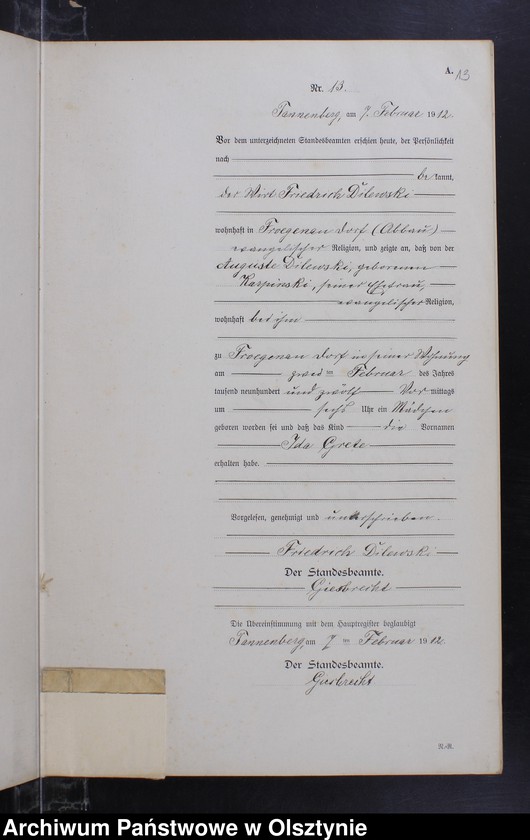 A. 13
Nr. 13.
Tannenberg, am 7. Februar 1912.
Vor dem unterzeichneten Standesbeamten erschien heute, der Persönlichkeit
nach
be kannt,
der Wirt Friedrich Dilewski
wohnhaft in Froegenau Dorf (Abbau)
evangelischer Religion, und zeigte an, daß von der
Auguste Dilewski, geborenen
Karpinski, seiner Ehefrau,
evangelischer Religion,
wohnhaft bei ihm
zu Froegenau Dorf in seiner Wohnung
am zwei ten Februar des Jahres
tausend neunhundert und zwölf Vor mittags
um sechs Uhr ein Mädchen
geboren worden sei und daß das Kind die Vornamen
Ida Grete
erhalten habe.
Vorgelesen, genehmigt und unterschrieben.
Friedrich Dilewski
Der Standesbeamte.
Giesbrecht
Die Übereinstimmung mit dem Hauptregister beglaubigt
Tannenberg, am 7 ten Februar 1912.
Der Standesbeamte.
Giesbrecht
Archiwum Państwowe w Olsztynie